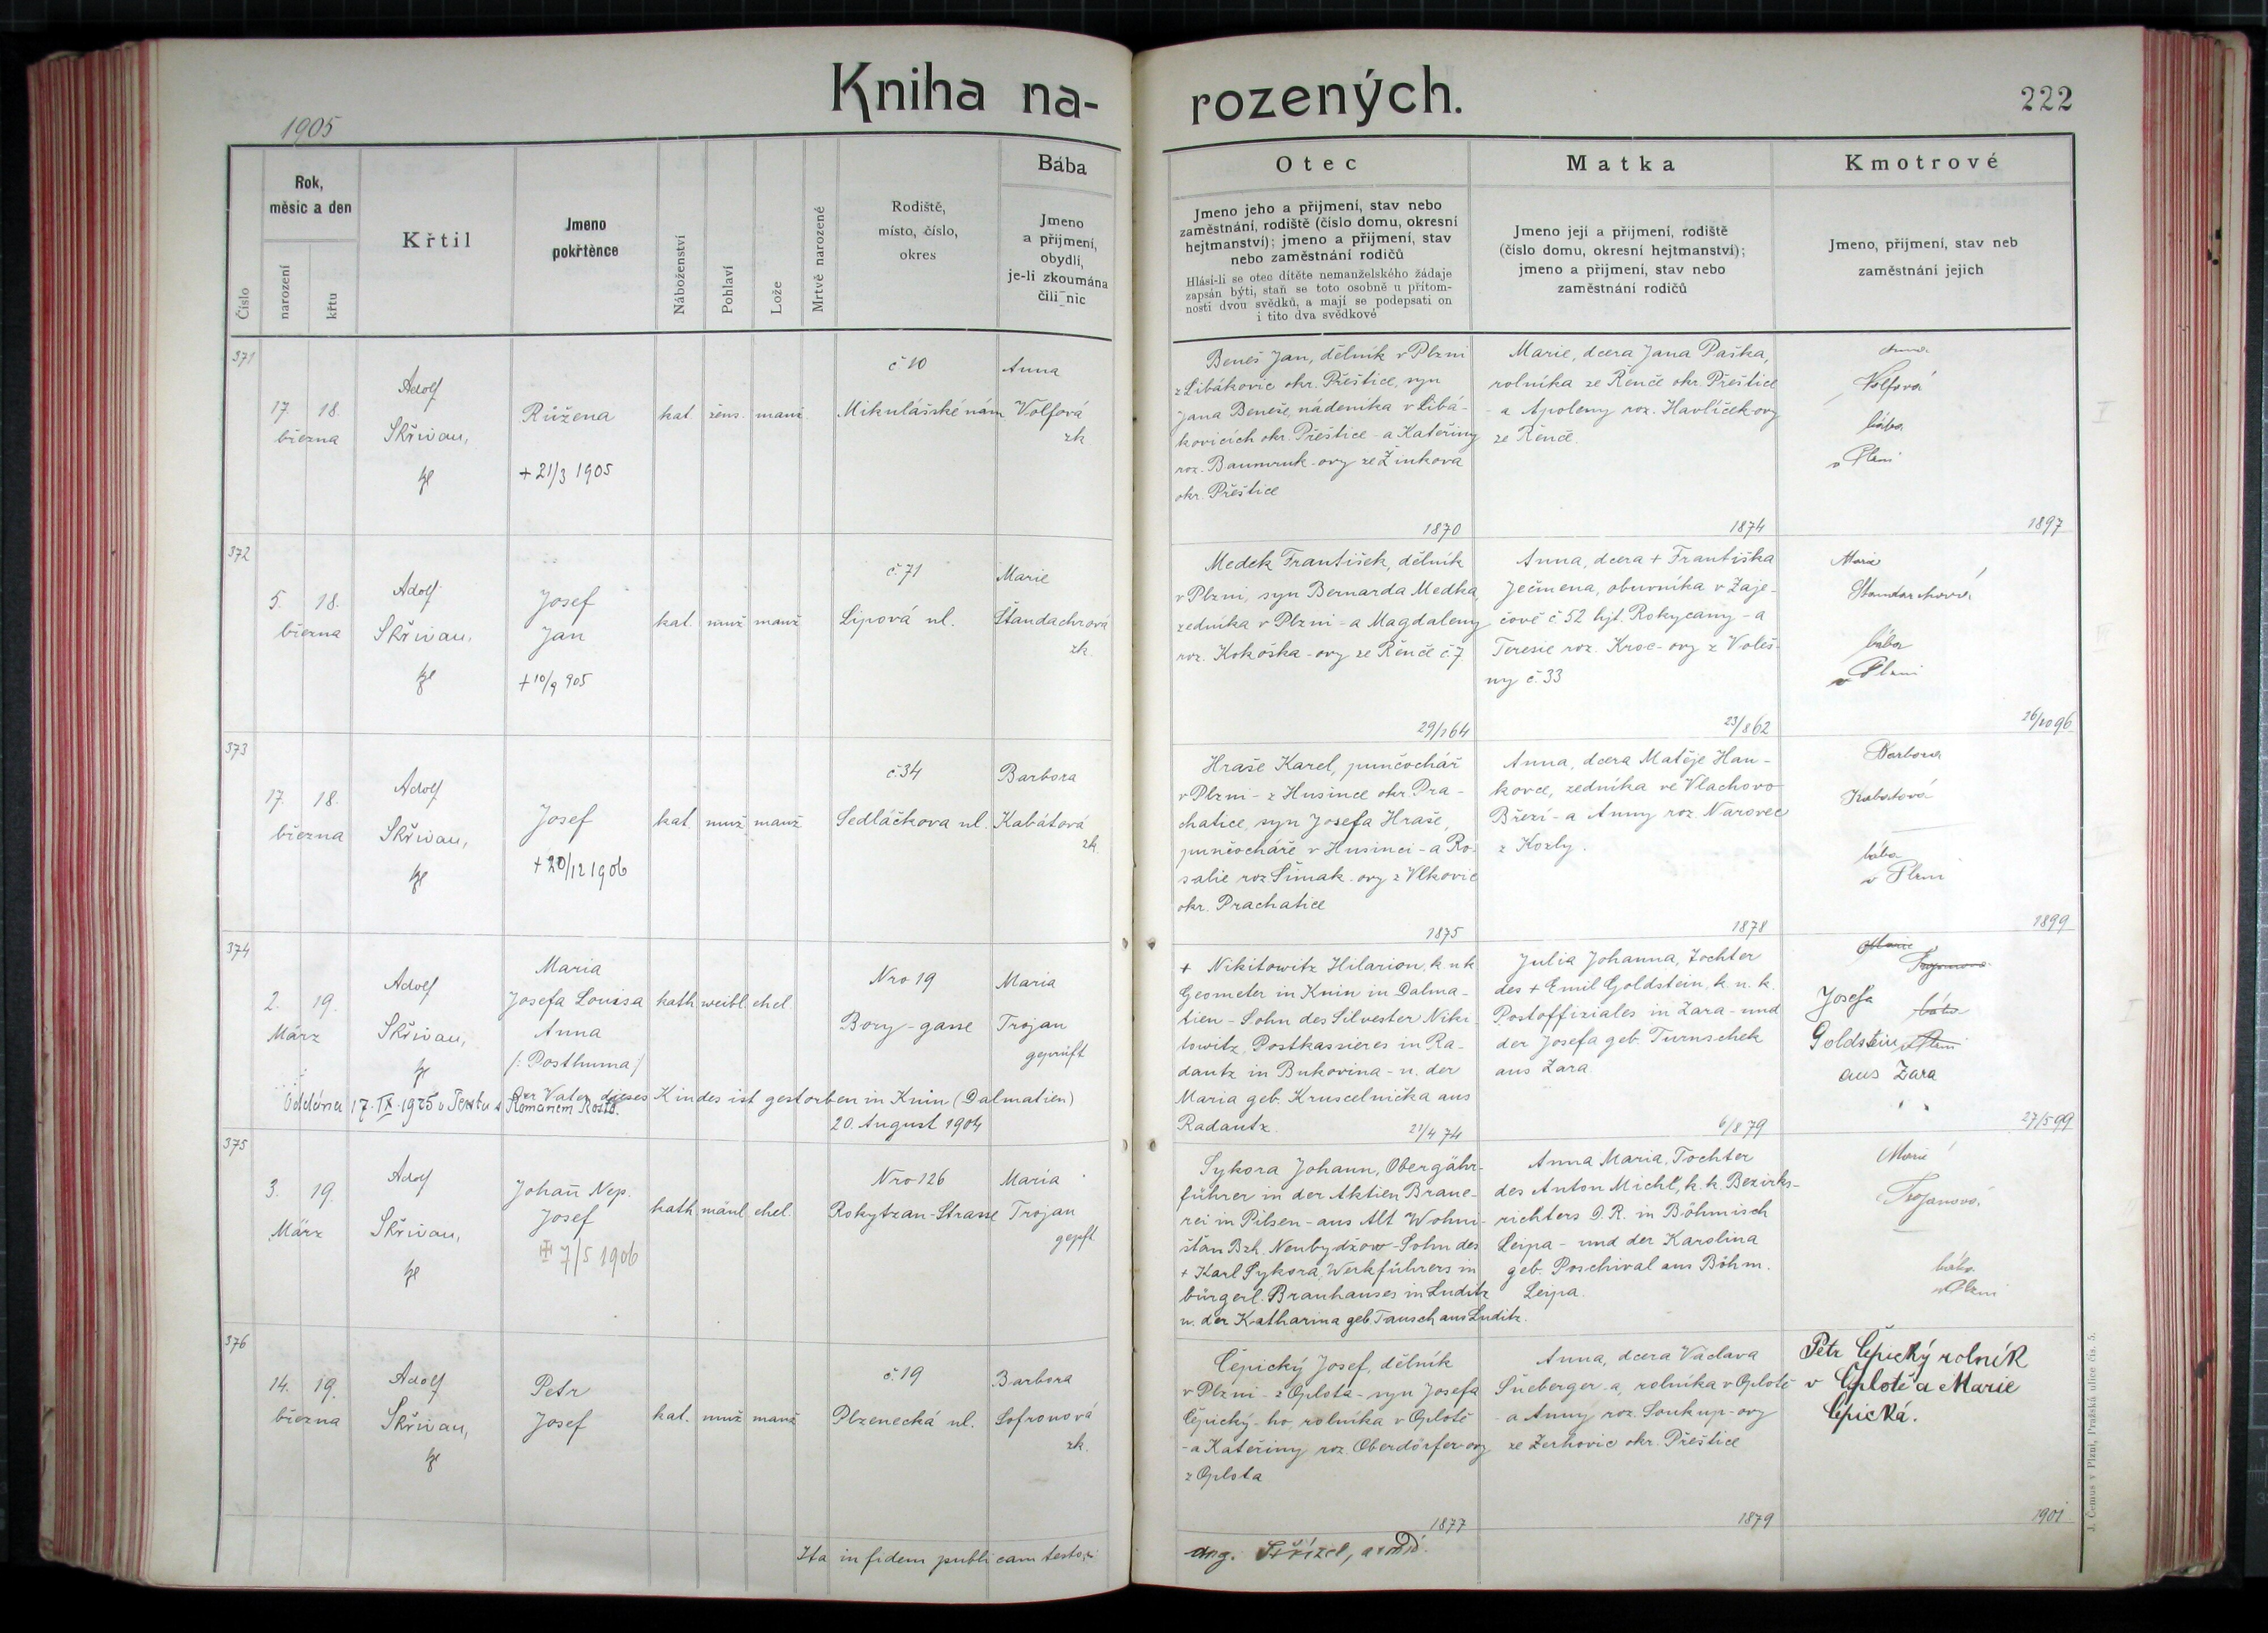 Kniha na-
rozených.
222
1905
Číslo
Rok,
měsíc a den
narození
křtu
Křtil
Jmeno
pokřtěnce
Náboženství
Pohlaví
Lože
Mrtvě narozené
Rodiště,
místo, číslo,
okres
Bába
Jmeno
a přijmení,
obydlí,
je-li zkoumána
čili nic
Otec
Jmeno jeho a přijmení, stav nebo
zaměstnání, rodiště (číslo domu, okresní
hejtmanství); jmeno a přijmení, stav
nebo zaměstnání rodičů
Hlásí-li se otec dítěte nemanželského žádaje
zapsán býti, staň se toto osobně u přítom-
nosti dvou svědků, a mají se podepsati on
i tito dva svědkové
Matka
Jmeno její a přijmení, rodiště
(číslo domu, okresní hejtmanství);
jmeno a přijmení, stav nebo
zaměstnání rodičů
Kmotrové
Jmeno, přijmení, stav neb
zaměstnání jejich
371
17. 18.
března
Adolf
Skřivan,
Růžena
+ 21/3 1905
kat. žens. manž.
č 10
Mikulášské nám.
Anna
Volfová
zk
Beneš Jan, dělník v Plzni
z Libákovic okr. Přeštice, syn
Jana Beneše, nádeníka v Libá-
kovicích okr. Přeštice - a Kateřiny
roz. Baumruk-ovy ze Žinkova
okr. Přeštice
1870
Marie, dcera Jana Paška,
rolníka ze Řenče okr. Přeštice
- a Apoleny roz. Havlíček-ovy
ze Řenče.
1874
Anna
Volfová
bába
v Plzni
1897
372
5. 18.
března
Adolf
Skřivan,
Josef
Jan
+ 10/9 905
kat. muž. manž.
č. 71
Lipová ul.
Marie
Štandachrová
zk.
Medek František, dělník
v Plzni, syn Bernarda Medka,
zedníka v Plzni - a Magdaleny
roz. Kokoška-ovy ze Řenče č. 7
29/1 64
Anna, dcera + Františka
Ječmena, obuvníka v Zaje-
čově č. 52 hjt. Rokycany - a
Teresie roz. Kroc-ovy z Voleš-
ny č. 33
23/8 62
Marie
bába
v Plzni
26/10 96
373
17. 18.
března
Adolf
Skřivan,
Josef
+ 20/12 1906
kat. muž. manž.
č. 34
Sedláčkova ul.
Barbora
Kabátová
zk.
Hraše Karel, punčochář
v Plzni - z Husince okr. Pra-
chatice, syn Josefa Hraše,
punčocháře v Husinci - a Ro-
salie roz. Šimak-ovy z Vlkovic
okr. Prachatice
1875
Anna, dcera Matěje Han-
kovce, zedníka ve Vlachovo
Březí - a Anny roz. Narovec
z Kozly.
1878
Barbora
Kabátová
bába
v Plzni
1899
374
2. 19.
März
Adolf
Skřivan,
Maria
Josefa Louisa
Anna
/: Posthuma :/
kath. weibl. ehel.
Nro 19
Bory-gasse
Maria
Trojan
geprüft
Oddána 17. IX. 1925 v Terstu s Romanem
Der Vater dieses Kindes ist gestorben in Knin (Dalmatien)
20. August 1904
+ Nikitowitz Hilarion, k. u k
Geometer in Knin in Dalma-
tien - Sohn des Silvester Niki-
towitz, Postkassieres in Ra-
dautz in Bukovina - u. der
Maria geb. Kruscelnička aus
Radautz.
21/4 74
Julia Johanna, Tochter
des + Emil Goldstein, k. u. k.
Postoffiziales in Zara - und
der Josefa geb. Turnschek
aus Zara.
6/8 79
Marie
Trojanová
Josefa bába
Goldstein v Plzni
aus Zara
27/5 99
375
3. 19.
März
Adolf
Skřivan,
Johan̄ Nep.
Josef
7/5 1906
kath. mänl. ehel.
Nro 126
Rokytzan-Strasse
Maria
Trojan
gepft
Sykora Johann, Obergähr-
führer in der Aktien Braue-
rei in Pilsen - aus Alt Wohni-
štan Bzh. Neubydžow - Sohn des
+ Karl Sykora, Werkführers in
bürgerl. Brauhauses in Luditz
u. der Katharina geb. Tausch aus Luditz.
Anna Maria, Tochter
des Anton Michl, k. k. Bezirks-
richters D. R. in Böhmisch
Leipa - und der Karolina
geb. Poschival aus Böhm.
Leipa.
Marie
Trojanová
bába
v Plzni
376
14. 19.
března
Adolf
Skřivan,
Petr
Josef
kat. muž. manž.
č. 19
Plzenecká ul.
Barbora
Sofronová
zk.
Čepický Josef, dělník
v Plzni - z Oplota - syn Josefa
Čepický-ho, rolníka v Oplotě
- a Kateřiny roz. Oberdörfer-ovy
z Oplota
1877
Anna, dcera Václava
Šneberger-a, rolníka v Oplotě
- a Anny roz. Soukup-ovy
ze Zerhovic okr. Přeštice
1879
Petr Čepický rolník
v Oplotě a Marie
Čepická.
1901
Ita in fidem publicam testor:
J. Čemus v Plzni, Pražská ulice čís. 5.